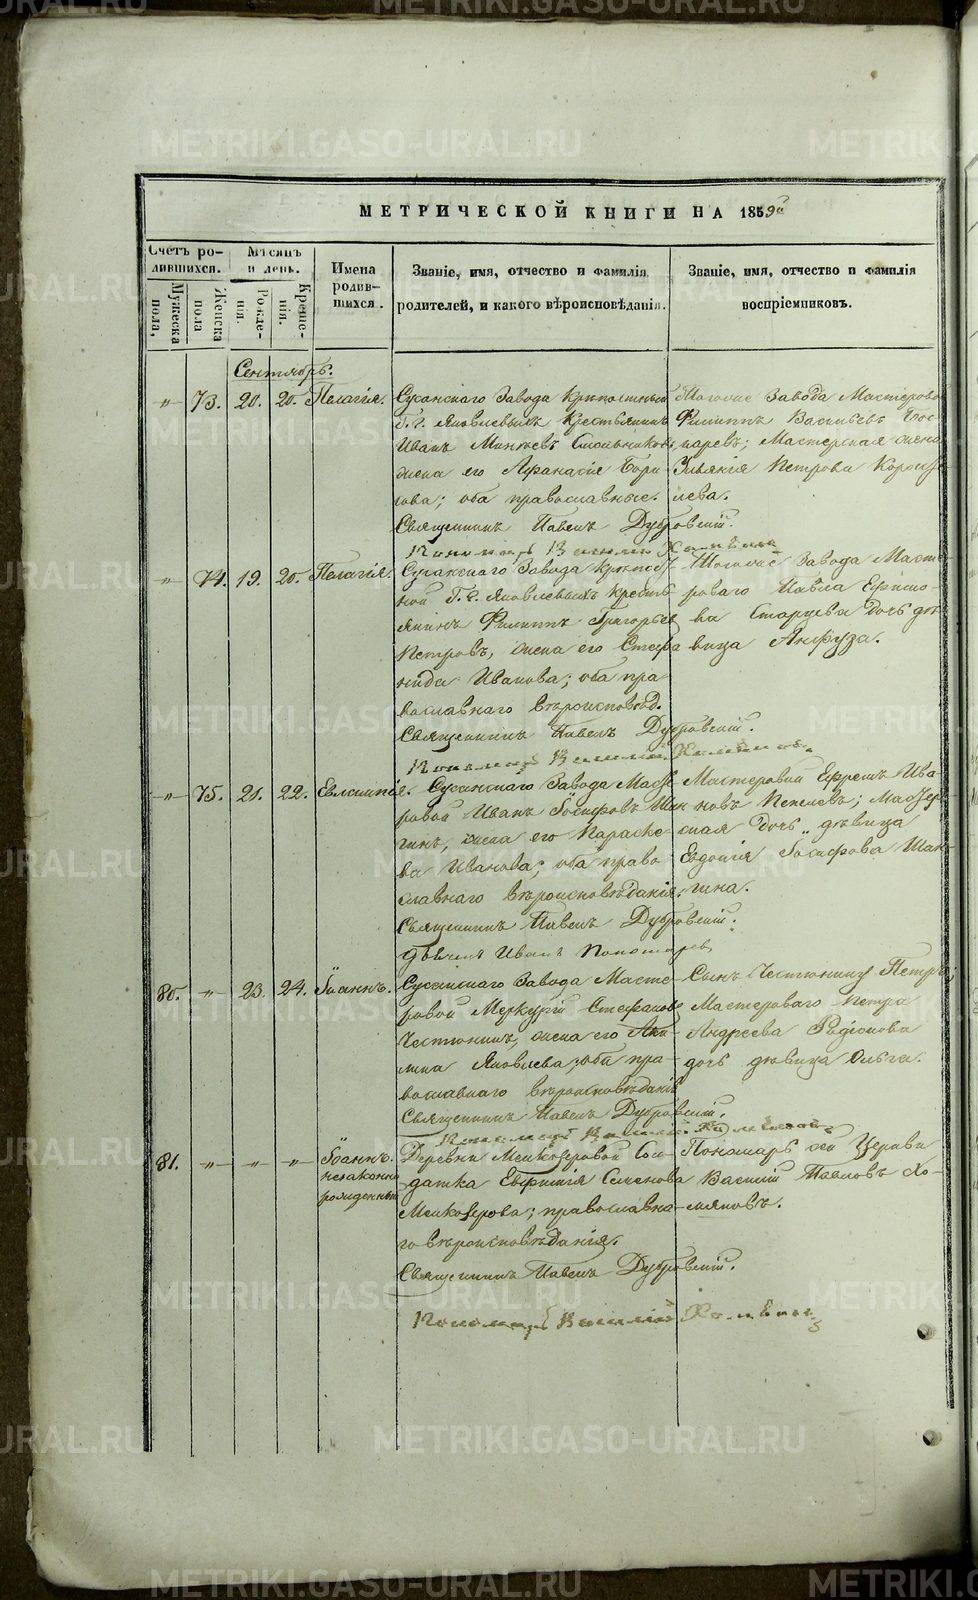 МЕТРИЧЕСКОЙ КНИГИ НА 1859й
Счетъ родившихся.
Мужеска пола.
Женска пола
Мѣсяцъ и день.
Рожденія.
Крещенія.
Имена родившихся.
Званіе, имя, отчество и фамилія родителей, и какого вѣроисповѣданія.
Званіе, имя, отчество и фамилія воспріемниковъ.
Сентябрь.
„ 73. 20. 20. Пелагія.
Сусанскаго Завода Крѣпостный
Г.г. Яковлевыхъ Крестьянинъ
Иванъ
жена его Афанасія Бори-
сова; оба православные.
Священникъ Павелъ Дубровскій.
Пономарь Василій
Тогоже Завода Мастеровой
Филиппъ Васильевъ
Мастерская жена
Петрова
лева.
„ 74. 19. 20. Пелагія.
Сусанскаго Завода Крѣпост-
ной Г.г. Яковлевыхъ Кресть-
янинъ Филиппъ Григорьевъ
Петровъ, жена его Стефа-
нида Иванова; оба пра-
вославнаго вѣроисповѣд.
Священникъ Павелъ Дубровскій.
Пономарь Василій
Тогоже Завода Масте-
роваго Павла Ефимо-
ва Старцева дочь дѣ-
вица Анфуза.
„ 75. 21. 22. Евлампія.
Сусанскаго Завода Масте-
ровой Иванъ Іосифовъ Шан-
гинъ, жена его Параске-
ва Иванова; оба право-
славнаго вѣроисповѣданія.
Священникъ Павелъ Дубровскій.
Дьячекъ Иванъ Пономаревъ
Мастеровой Ефремъ Ива-
новъ Пепелевъ; Мастер-
ская дочь „ дѣвица
Евдокія Іосифова Шан-
гина.
80. „ 23. 24. Іоаннъ.
Сусанскаго Завода Масте-
ровой Меркурій Стефановъ
Чести­хинъ, жена его Аки-
лина Яковлева; оба пра-
вославнаго вѣроисповѣданія
Священникъ Павелъ Дубровскій.
Пономарь Василій
Сынъ Петръ;
Мастероваго Петра
Андреева Родіонова
дочь дѣвица Ольга.
81. „ „ „ Іоаннъ.
незаконно
рожденный
Деревни Мелкозеровой Сол-
датка Евфимія Семенова
Мелкозерова; православна-
го вѣроисповѣданія.
Священникъ Павелъ Дубровскій.
Пономарь Василій
Пономарь сей Церкви
Василій Павловъ Хо-
мяковъ.